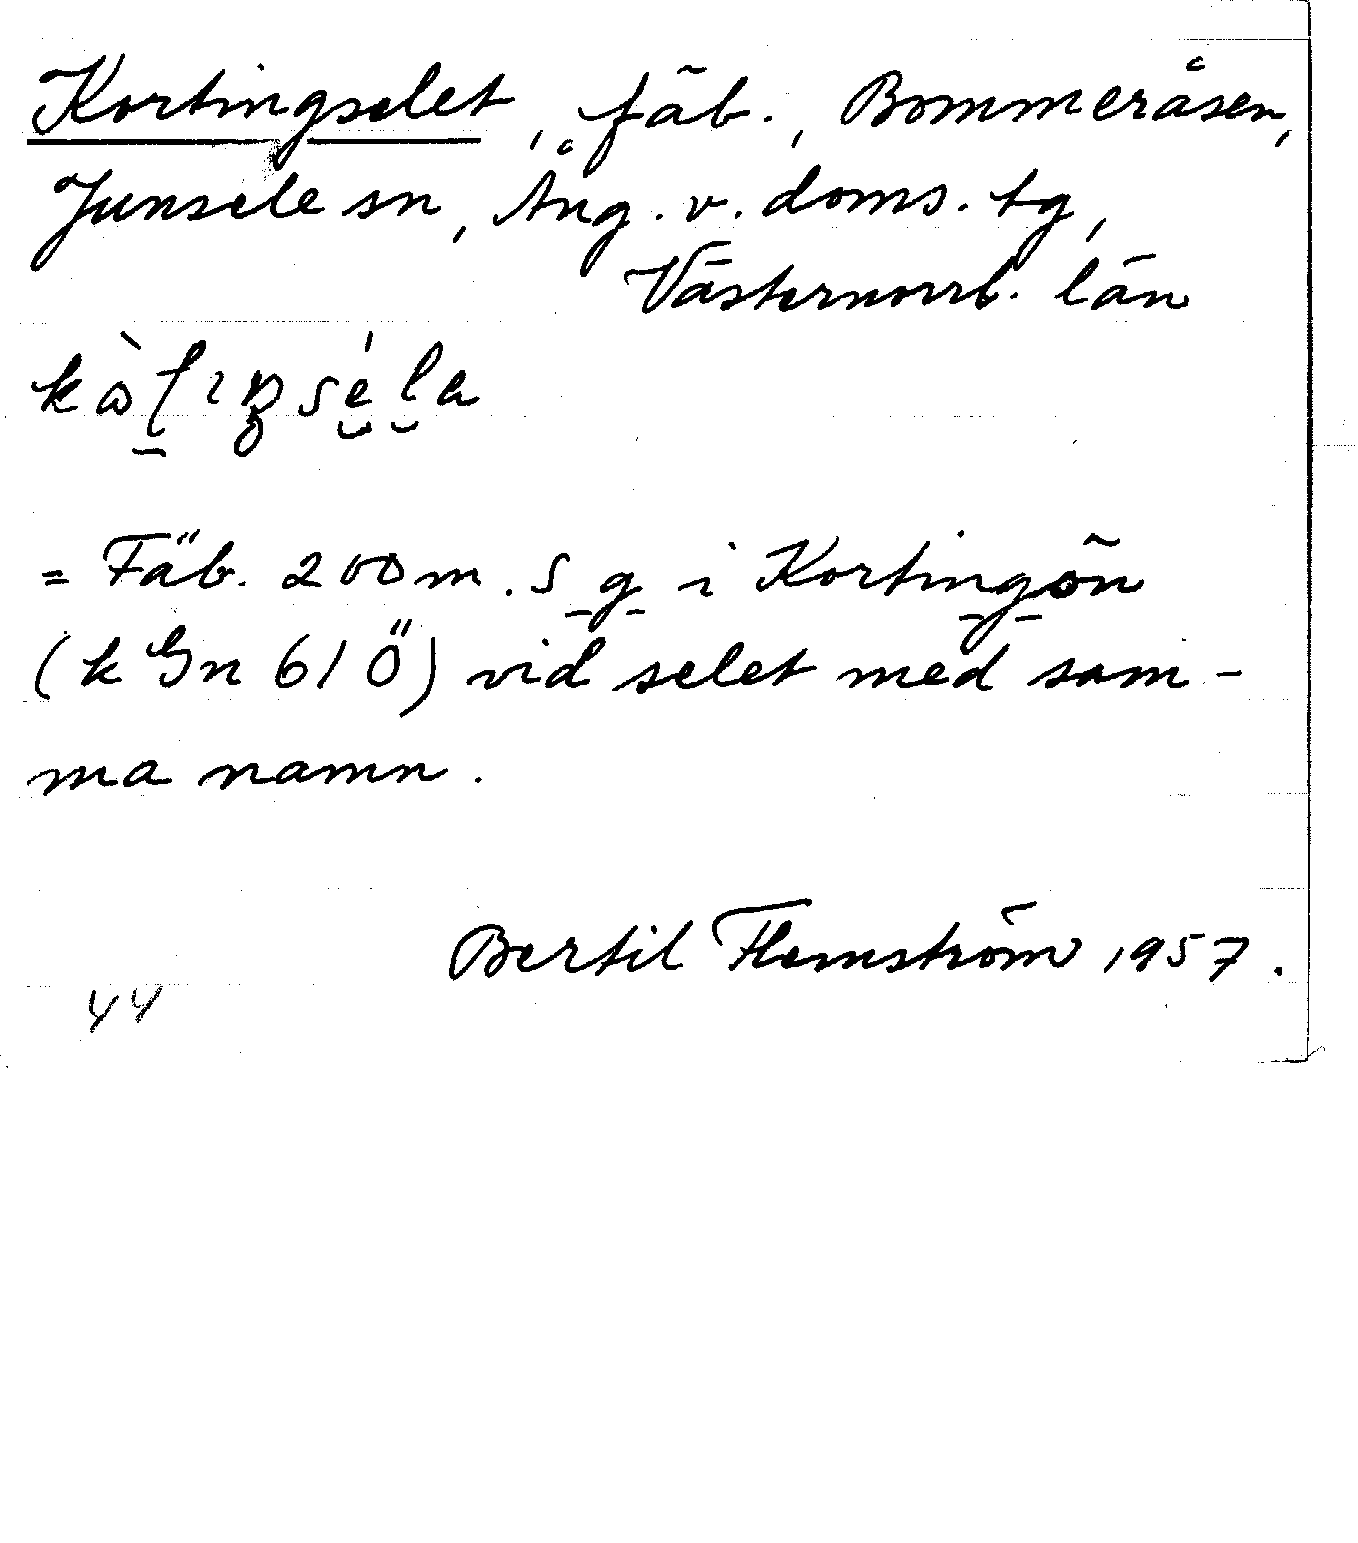 Kortingselet, fäb., Bommeråsen,
Junsele sn, Ång. v. doms. tg,
Västernorrl. län
= Fäb. 200 m. S g i Kortingön
(k Gn 61 Ö) vid selet med sam-
ma namn.
Bertil Flemström 1957.
44